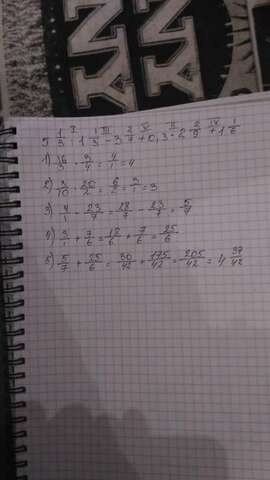 5 1/3 : 1 1/3 - 3 2/7 + 0,3 · 2 2/9 + 1 1/6
I III V II IV
1) 16/3 · 3/4 = 4/1 = 4
2) 3/10 · 20/2 = 6/2 = 3/1 = 3
3) 4/1 - 23/7 = 28/7 - 23/7 = 5/7
4) 3/1 + 7/6 = 18/6 + 7/6 = 25/6
5) 5/7 + 25/6 = 30/42 + 175/42 = 205/42 = 4 37/42